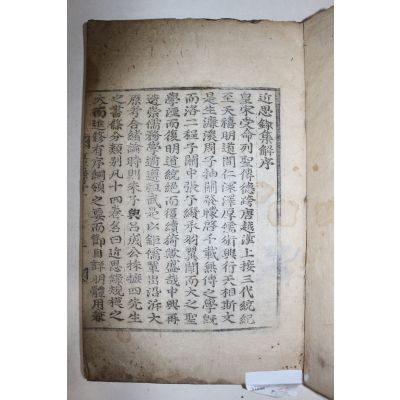 近思錄集解序
皇宋受命列聖傳德跨唐越漢上接三代統紀
至天禧明道間仁深澤厚儒術興行天相斯文
是生濂溪周子抽關發矇啓千載無傳之學旣
而洛二程子關中張子纘承羽翼闡而大之聖
學湮而復明道統絶而復續猗歟盛哉中興再
造崇儒務學遹遵祖武是以鉅儒輩出沿泝大
原考合緖論時則朱子與呂成公採摭四先生
之書條分類別凡十四卷名曰近思錄規模之
大而進修有序綱領之要而節目詳明體用兼